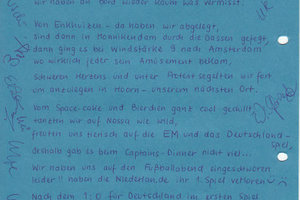 wir haben an Bord wieder kaum was vermisst.
Von Enkhuizen - da haben wir abgelegt,
sind dann in Monnikendam durch die Gassen gefegt,
dann ging es bei Windstärke 9 nach Amsterdam
wo wirklich jeder sein Amüsement bekam,
Schweren Herzens und unter Protest segelten wir fort
um anzulegen in Hoorn - unserem nächsten Ort.
Vom Space-cake und Bierchen ganz cool gechillt
tanzten wir auf Nossa wie wild,
freuten uns tierisch auf die EM und das Deutschland-
Spiel,
deshalb gab es beim Captains-Dinner nicht viel...
Wir haben uns auf den Fußballabend eingeschworen
leider!! haben die Niederlan. ihr 1. Spiel verloren
Nach dem 1:0 für Deutschland im ersten Spiel